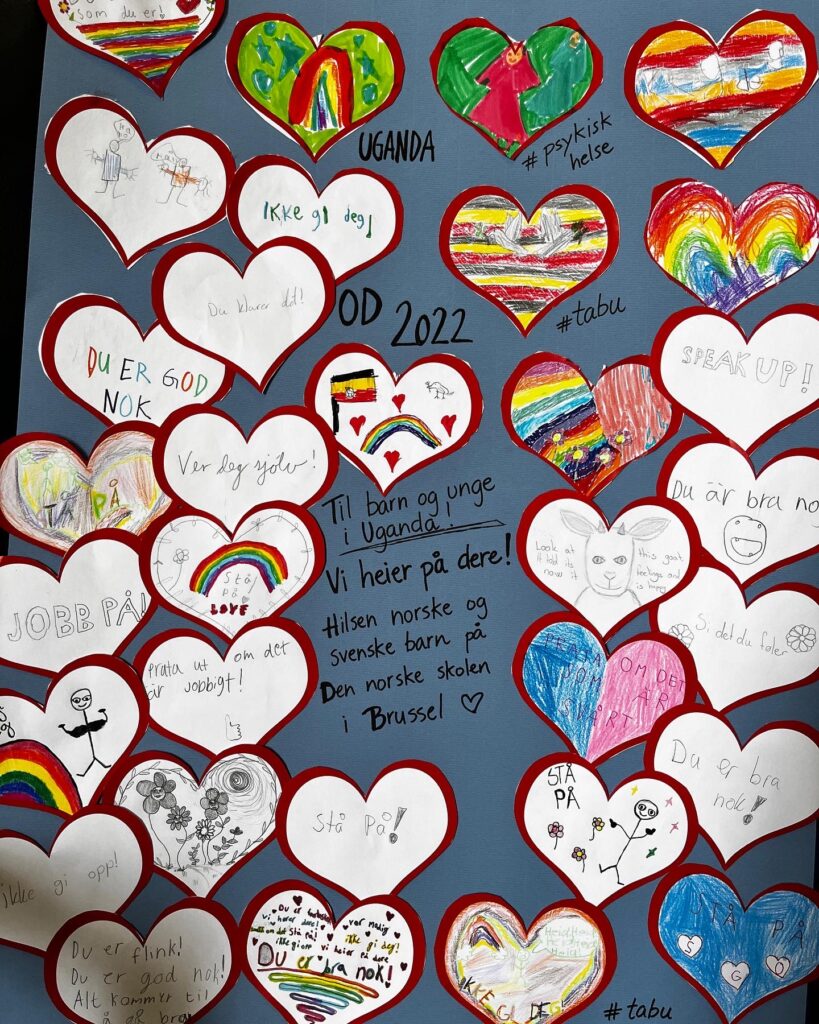 som du er!
UGANDA
# psykisk
helse
IKKE gi deg!
Du klarer det!
OD 2022
#tabu
SPEAK UP!
DU ER GOD
NOK
Ver deg sjölv!
Til barn og unge
i Uganda!
Vi heier på dere!
Hilsen norske og
svenske barn på
Den norske skolen
i Brussel ♡
Du är bra no
TÅ PÅ
Stå
på
LOVE
Look at
this goat
feelings and
is happy
JOBB PÅ!
Si det du føler
Prata ut om det
är jobbigt!
PRATA OM DET
SOM ÄR
SVÅRT
Du er bra
nok!
STÅ
PÅ
Stå På!
ikke gi opp!
Du er flink!
Du er god nok!
Alt kommer til
å gå bra
Du er
vi heier på dere
ikke gi deg!
Du er bra nok!
IKKE GI DEG
#tabu
STÅ PÅ
S G O